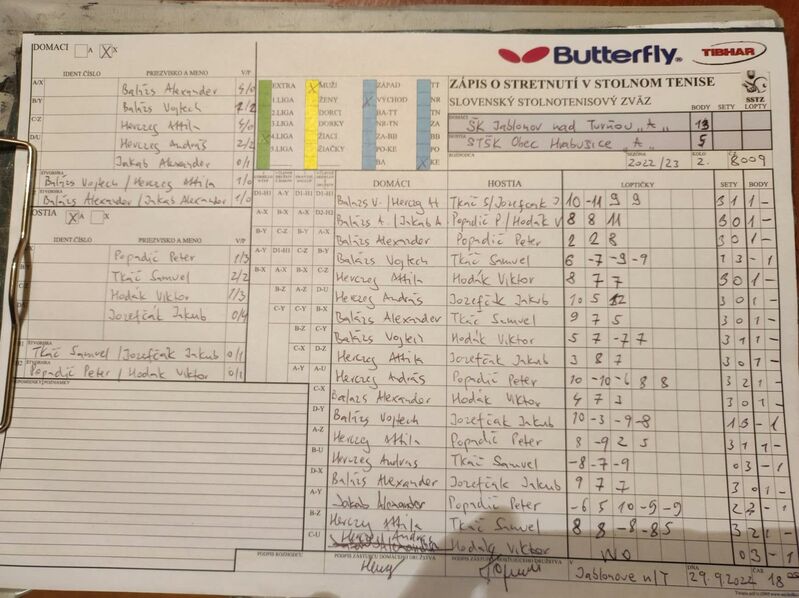 Butterfly
TIBHAR
DOMACI A X X
IDENT ČÍSLO PRIEZVISKO A MENO V/P
A/X Balázs Alexander 4/0
B/Y Balázs Vojtech
C/Z Herczeg Attila 4/0
D/U Herczeg András 2/2
Jakab Alexander 0/1
ŠTVORHRA Balázs Vojtech / Herczeg Attila 1/0
ŠTVORHRA Balázs Alexander / Jakab Alexander 1/0
HOSTIA X A X
IDENT ČÍSLO PRIEZVISKO A MENO V/P
Popadič Peter 1/3
Tkáč Samuel 2/2
Hodák Viktor 1/3
Jozefčák Jakub 0/4
ŠTVORHRA
Tkáč Samuel / Jozefčák Jakub 0/1
ŠTVORHRA
Popadič Peter / Hodák Viktor 0/1
PRIPOMIENKY / POZNÁMKY
EXTRA X MUŽI ZÁPAD TT
1.LIGA ŽENY X VÝCHOD NR
2.LIGA DORCI BA-TT TN
3.LIGA DORKY NR-TN ZA
4.LIGA ŽIACI ZA-BB BB
5.LIGA ŽIAČKY PO-KE PO
BA X KE
ZÁPIS O STRETNUTÍ V STOLNOM TENISE
SLOVENSKÝ STOLNOTENISOVÝ ZVÄZ
SSTZ
BODY SETY LOPTY
DOMÁCI ŠK Jablonov nad Turňou "A" 13
HOSTIA STŠK Obec Hrabušice "A" 5
ROZHODCA SEZÓNA 2022/23 KOLO 2. Č. 8009
DOMÁCI HOSTIA LOPTIČKY SETY BODY
Balázs V. / Herczeg A Tkáč S/Jozefčák J 10 -11 9 9 3 1 1 -
Balázs A. / Jakab A Popadič P / Hodák V 8 8 11 3 0 1 -
Balázs Alexander Popadič Peter 2 2 8 3 0 1 -
Balázs Vojtech Tkáč Samuel 6 -7 -9 -9 1 3 - 1
Herczeg Attila Hodák Viktor 8 7 7 3 0 1 -
Herczeg András Jozefčák Jakub 10 5 12 3 0 1 -
Balázs Alexander Tkáč Samuel 9 7 5 3 0 1 -
Balázs Vojtech Hodák Viktor 5 7 -7 7 3 1 1 -
Herczeg Attila Jozefčák Jakub 3 8 7 3 0 1 -
Herczeg András Popadič Peter 10 -10 -6 8 8 3 2 1 -
Balázs Alexander Hodák Viktor 4 7 3 3 0 1 -
Balázs Vojtech Jozefčák Jakub 10 -3 -9 -8 1 3 - 1
Herczeg Attila Popadič Peter 8 -9 2 3 1 1 -
Herczeg András Tkáč Samuel -8 -7 -9 0 3 - 1
Balázs Alexander Jozefčák Jakub 9 7 7 3 0 1 -
Jakab Alexander Popadič Peter -6 5 10 -9 -9 2 - 1
Herczeg Attila Tkáč Samuel 8 8 -8 -8 5 3 2 1 -
Herczeg András Hodák Viktor WO 0 3 - 1
PODPIS ROZHODCU PODPIS ZÁSTUPCU DOMÁCEHO DRUŽSTVA PODPIS ZÁSTUPCU HOSŤUJÚCEHO DRUŽSTVA
V Jablonove n/T DŇA 29.9.2022 ČAS 18 00